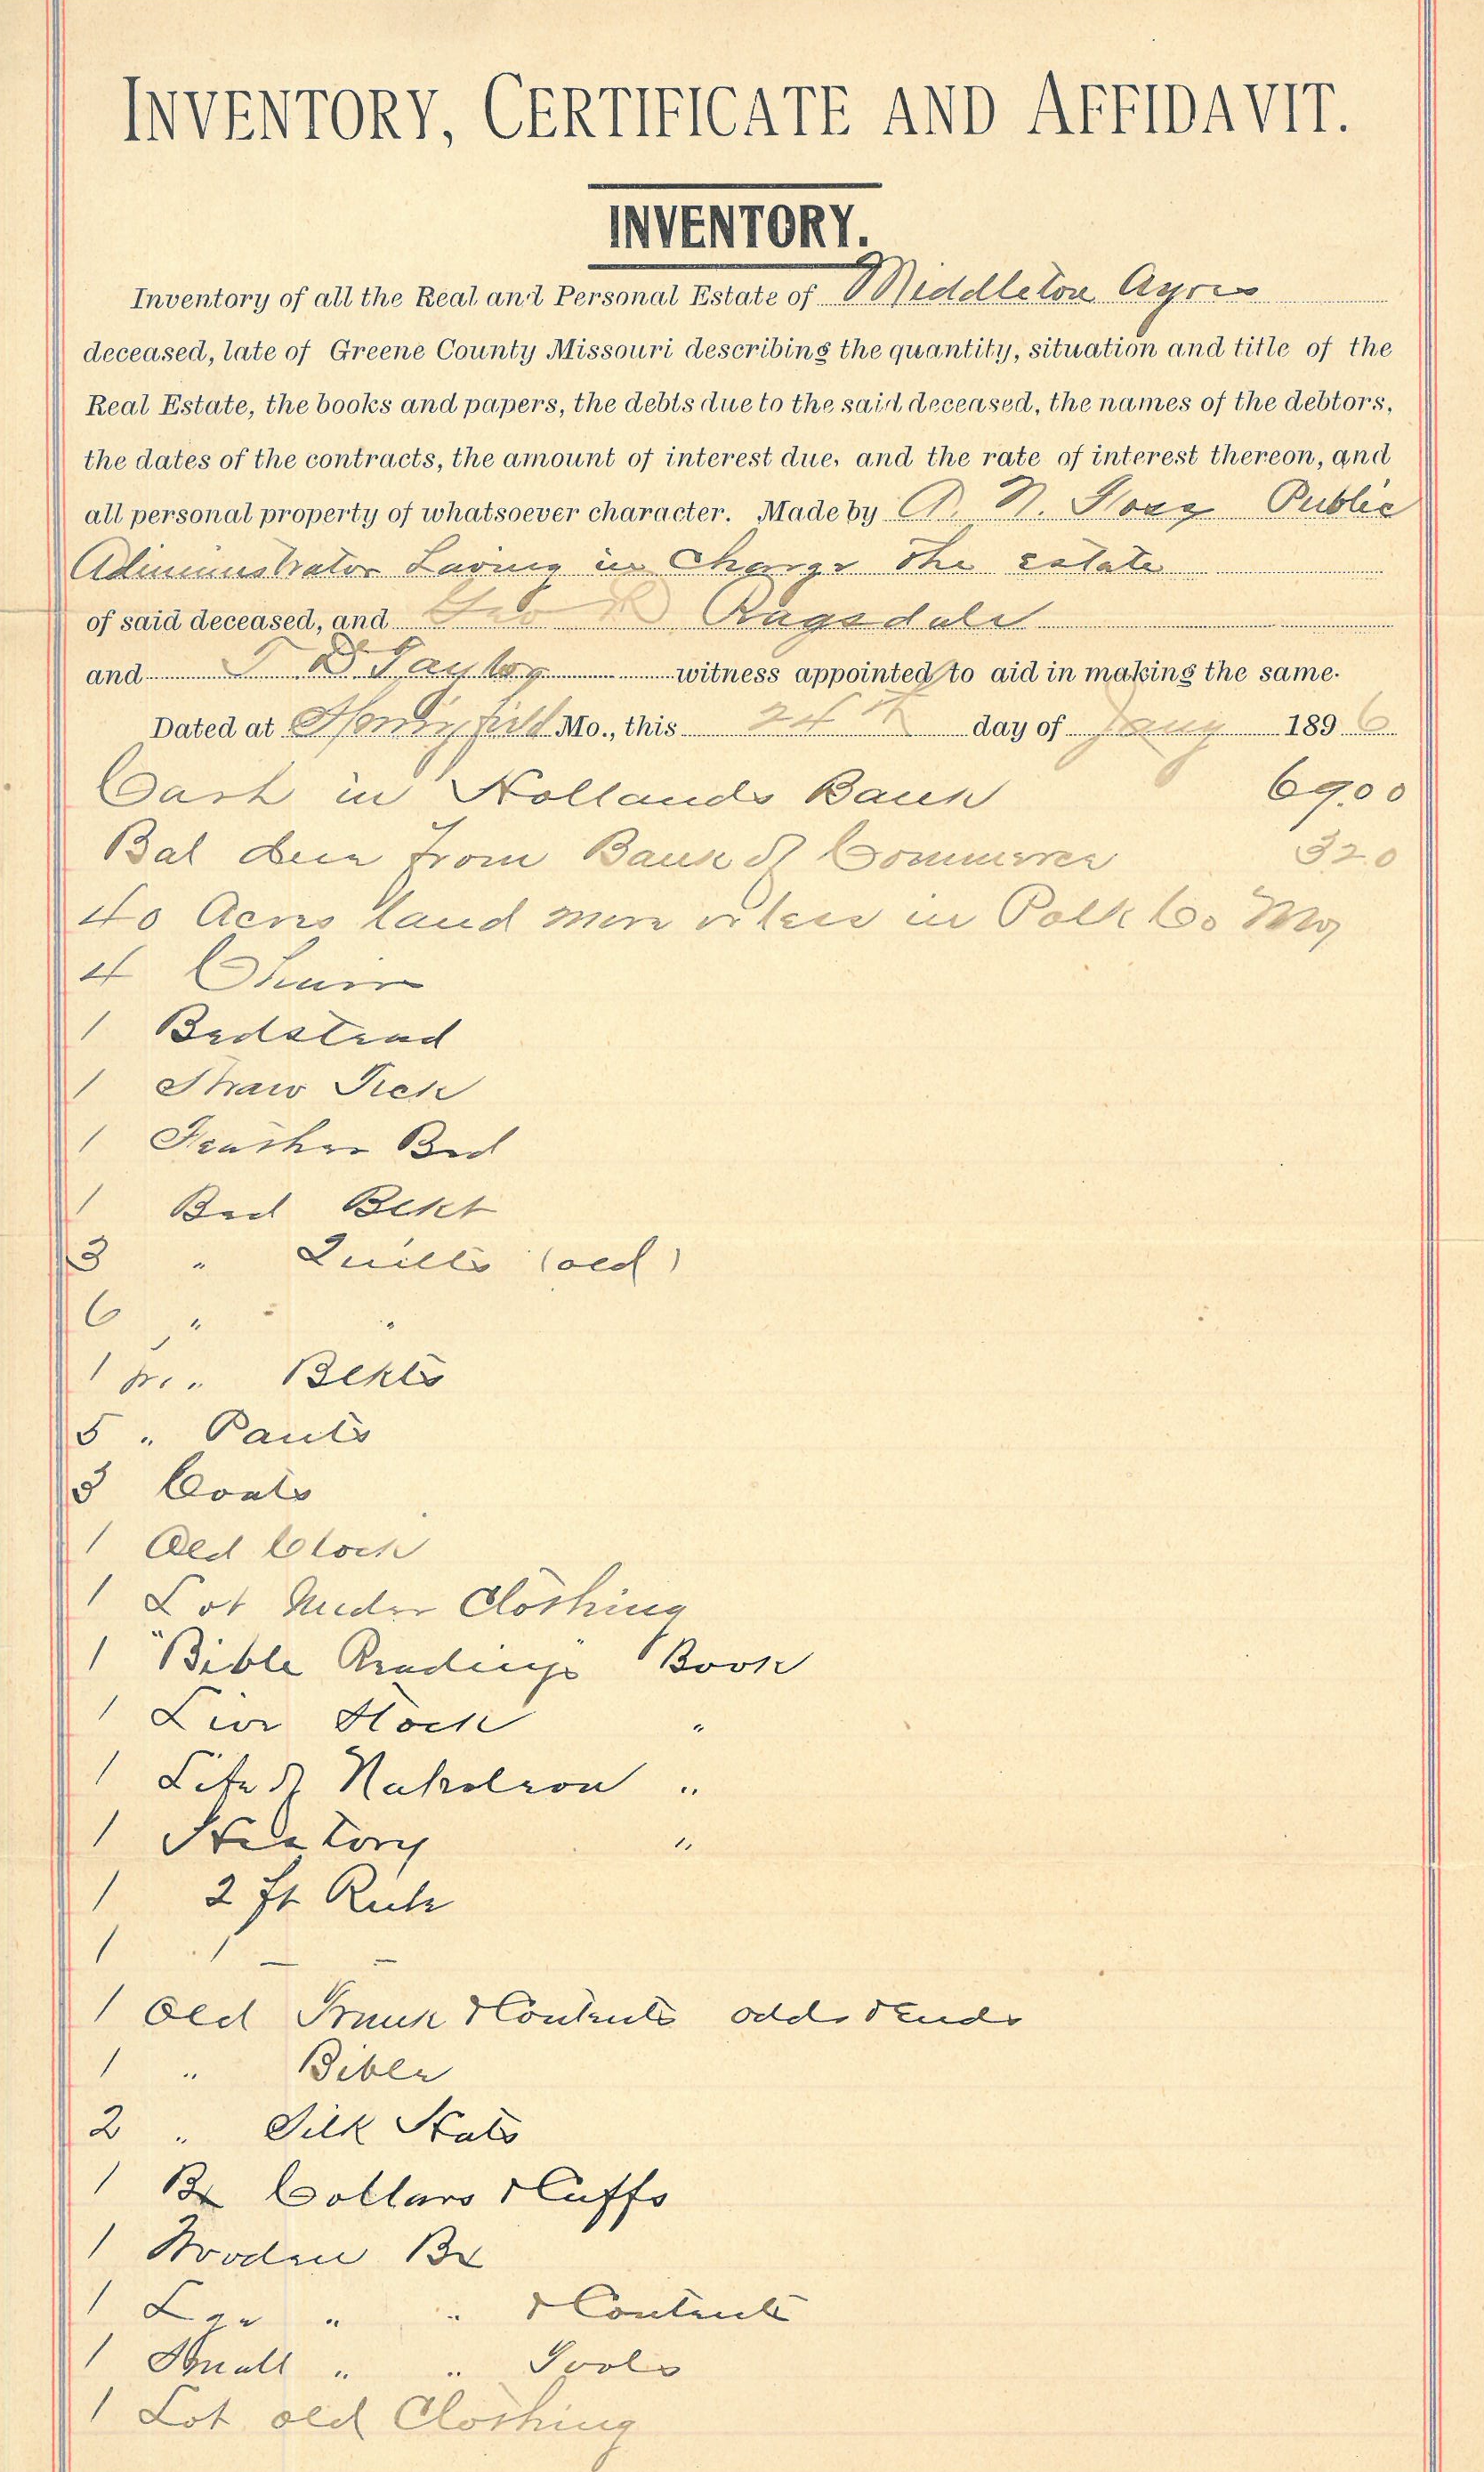 INVENTORY, CERTIFICATE AND AFFIDAVIT.
INVENTORY.
Inventory of all the Real and Personal Estate of Middleton Ayres
deceased, late of Greene County Missouri describing the quantity, situation and title of the
Real Estate, the books and papers, the debts due to the said deceased, the names of the debtors,
the dates of the contracts, the amount of interest due, and the rate of interest thereon, and
all personal property of whatsoever character. Made by N. Public
Administrator having in Charge the estate
of said deceased, and Geo Ragsdale
and T D Taylor witness appointed to aid in making the same.
Dated at Springfield Mo., this 24th day of Jany 1896
Cash in Hollands Bank 69.00
Bal due from Bank of Commerce 3 20
40 Acres land more or less in Polk Co Mo
4 Chairs
1 Bedstead
1 Straw Tick
1 Feather Bed
1 Bed Blkt
3 " Quilts (old)
6 " "
1 pr. " Blkts
5 " Pants
3 Coats
1 Old Clock
1 Lot Under Clothing
1 "Bible Readings" Book
1 Live Stock "
1 Life of Napoleon "
1 History "
1 2 ft Rule
1
1 Old Trunk & Contents odds & Ends
1 " Bible
2 " Silk Hats
1 Bx Collars & Cuffs
1 Wooden Bx
1 Lge " " & Contents
1 Small " " Tools
1 Lot old Clothing